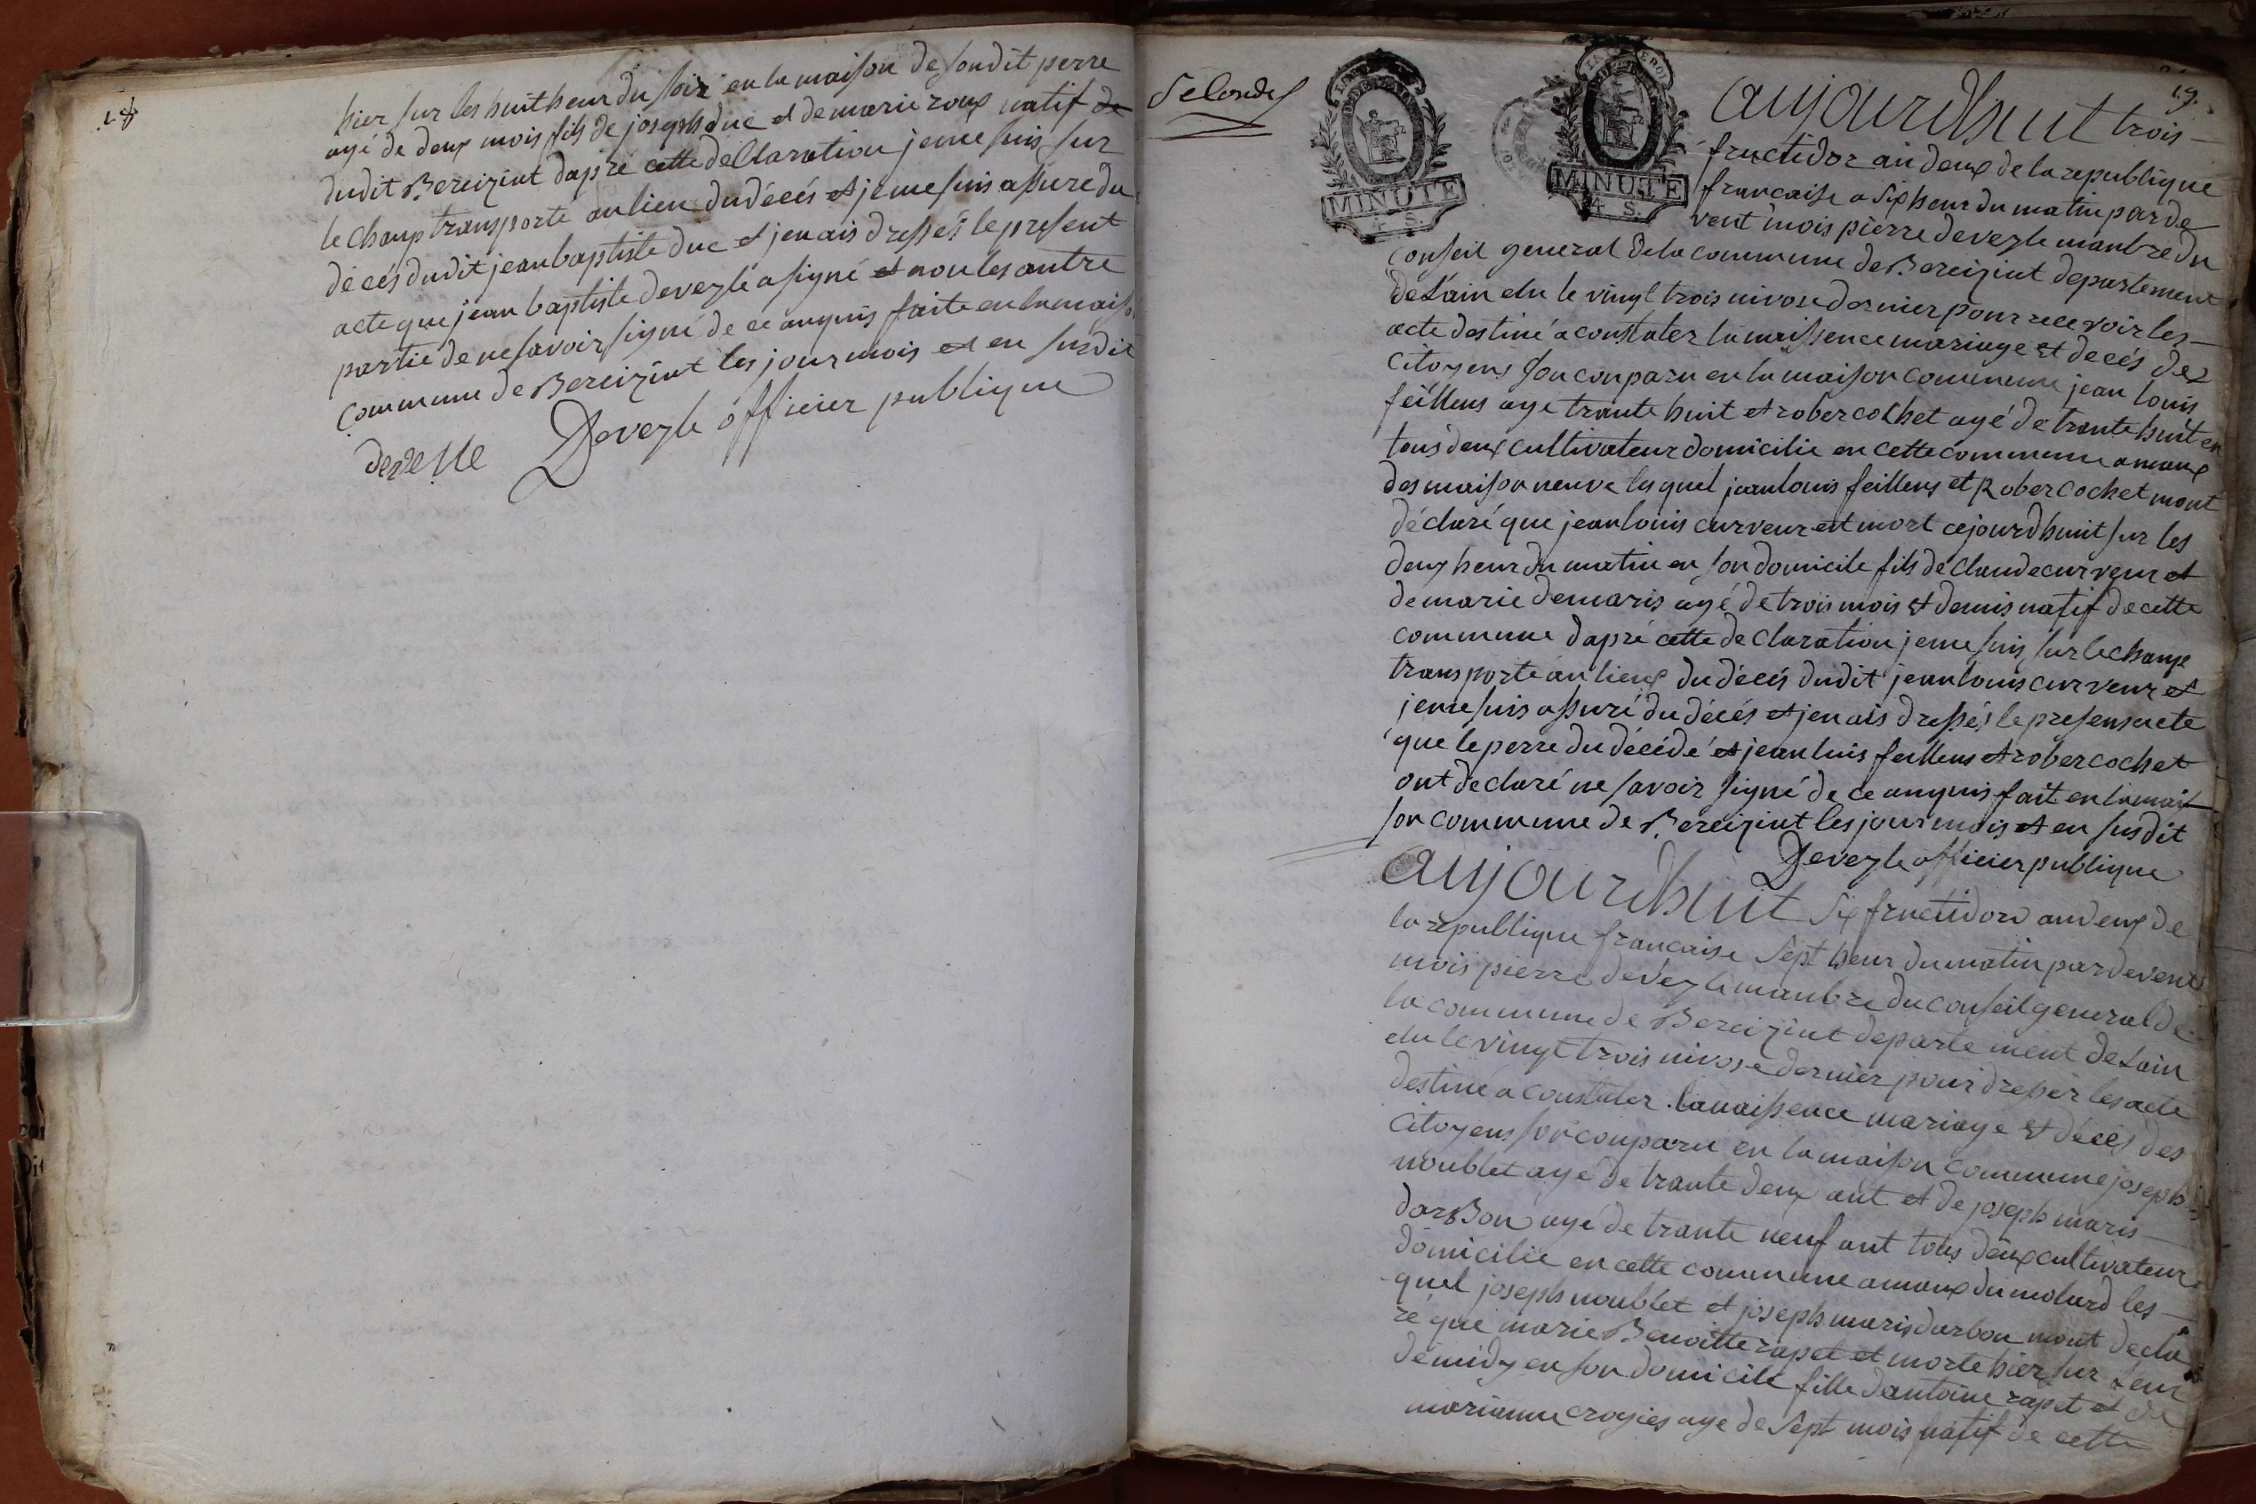 18
hier sur les huit heur du soir en la maison de son dit perre
agé de deux mois fils de joseph duc et de marie roux natif de
dudit Bereiziat dapré cette declaration je me suis sur
le champ transporté au lieu du décés et je me suis assure du
décés dudit jean baptiste duc et jen ais dressés le present
acte que jean baptiste deveyle a signé et non les autre
partie de ne savoir signé de ce anquis faite en la maiso
commune de Bereiziat les jour mois et en susdit
Deveyle officier publique
19.
MINUTE
MINUTE
4 S.
aujourdhuit trois
fructidor an deux de la republique
francaise a six heur du matin par de
vent mois pierre deveyle manbre du
conseil general de la commune de Bereiziat departement
de Lain elu le vingt trois nivose dernier pour recevoir les
acte destiné a constater la naissence mariage et decés des
Citoyens son conparu en la maison commune jean louis
feillens age trante huit et rober cochet agé de trante huit en
tous deux cultivateur domicilie en cette commune a meaux
des maison neuve les quel jean louis feillens et Rober cochet mont
déclaré que jean louis curveur est mort cejourdhuit sur les
deux heur du matin en son domicile fils de claude curveur et
de marie demaris agé de trois mois et demis natif de cette
commune dapré cette declaration je me suis sur le champ
transporté au lieux du décés dudit jean louis curveur et
je me suis assuré du décés et jen ais dressés le presens acte
que le perre du décédé et jean luis feillens et rober cochet
ont declaré ne savoir signé de ce anquis fait en la mai
son commune de Bereiziat les jour mois et en susdit
Deveyle officier publique
aujourdhuit six fructidor an deux de
la republique francaise sept heur du matin par devent
mois pierre deveyle manbre du conseil general de
la commune de Bereiziat departement de Lain
elu le vingt trois nivose dernier pour dresser les acte
destiné a constater la naissence mariage et décés des
Citoyens son conparu en la maison commune joseph
noublet agé de trante deux ant et de joseph maris
darbon agé de trante neuf ant tous deux cultivateur
domicilie en cette commune a meaux du molard les
quel joseph noublet et joseph maris darbon mont decla
ré que marie Benoitte rapet et morte hier sur leur
de midy en son domicile fille dantoine rapet et de
marianne croyies age de sept mois natif de cette